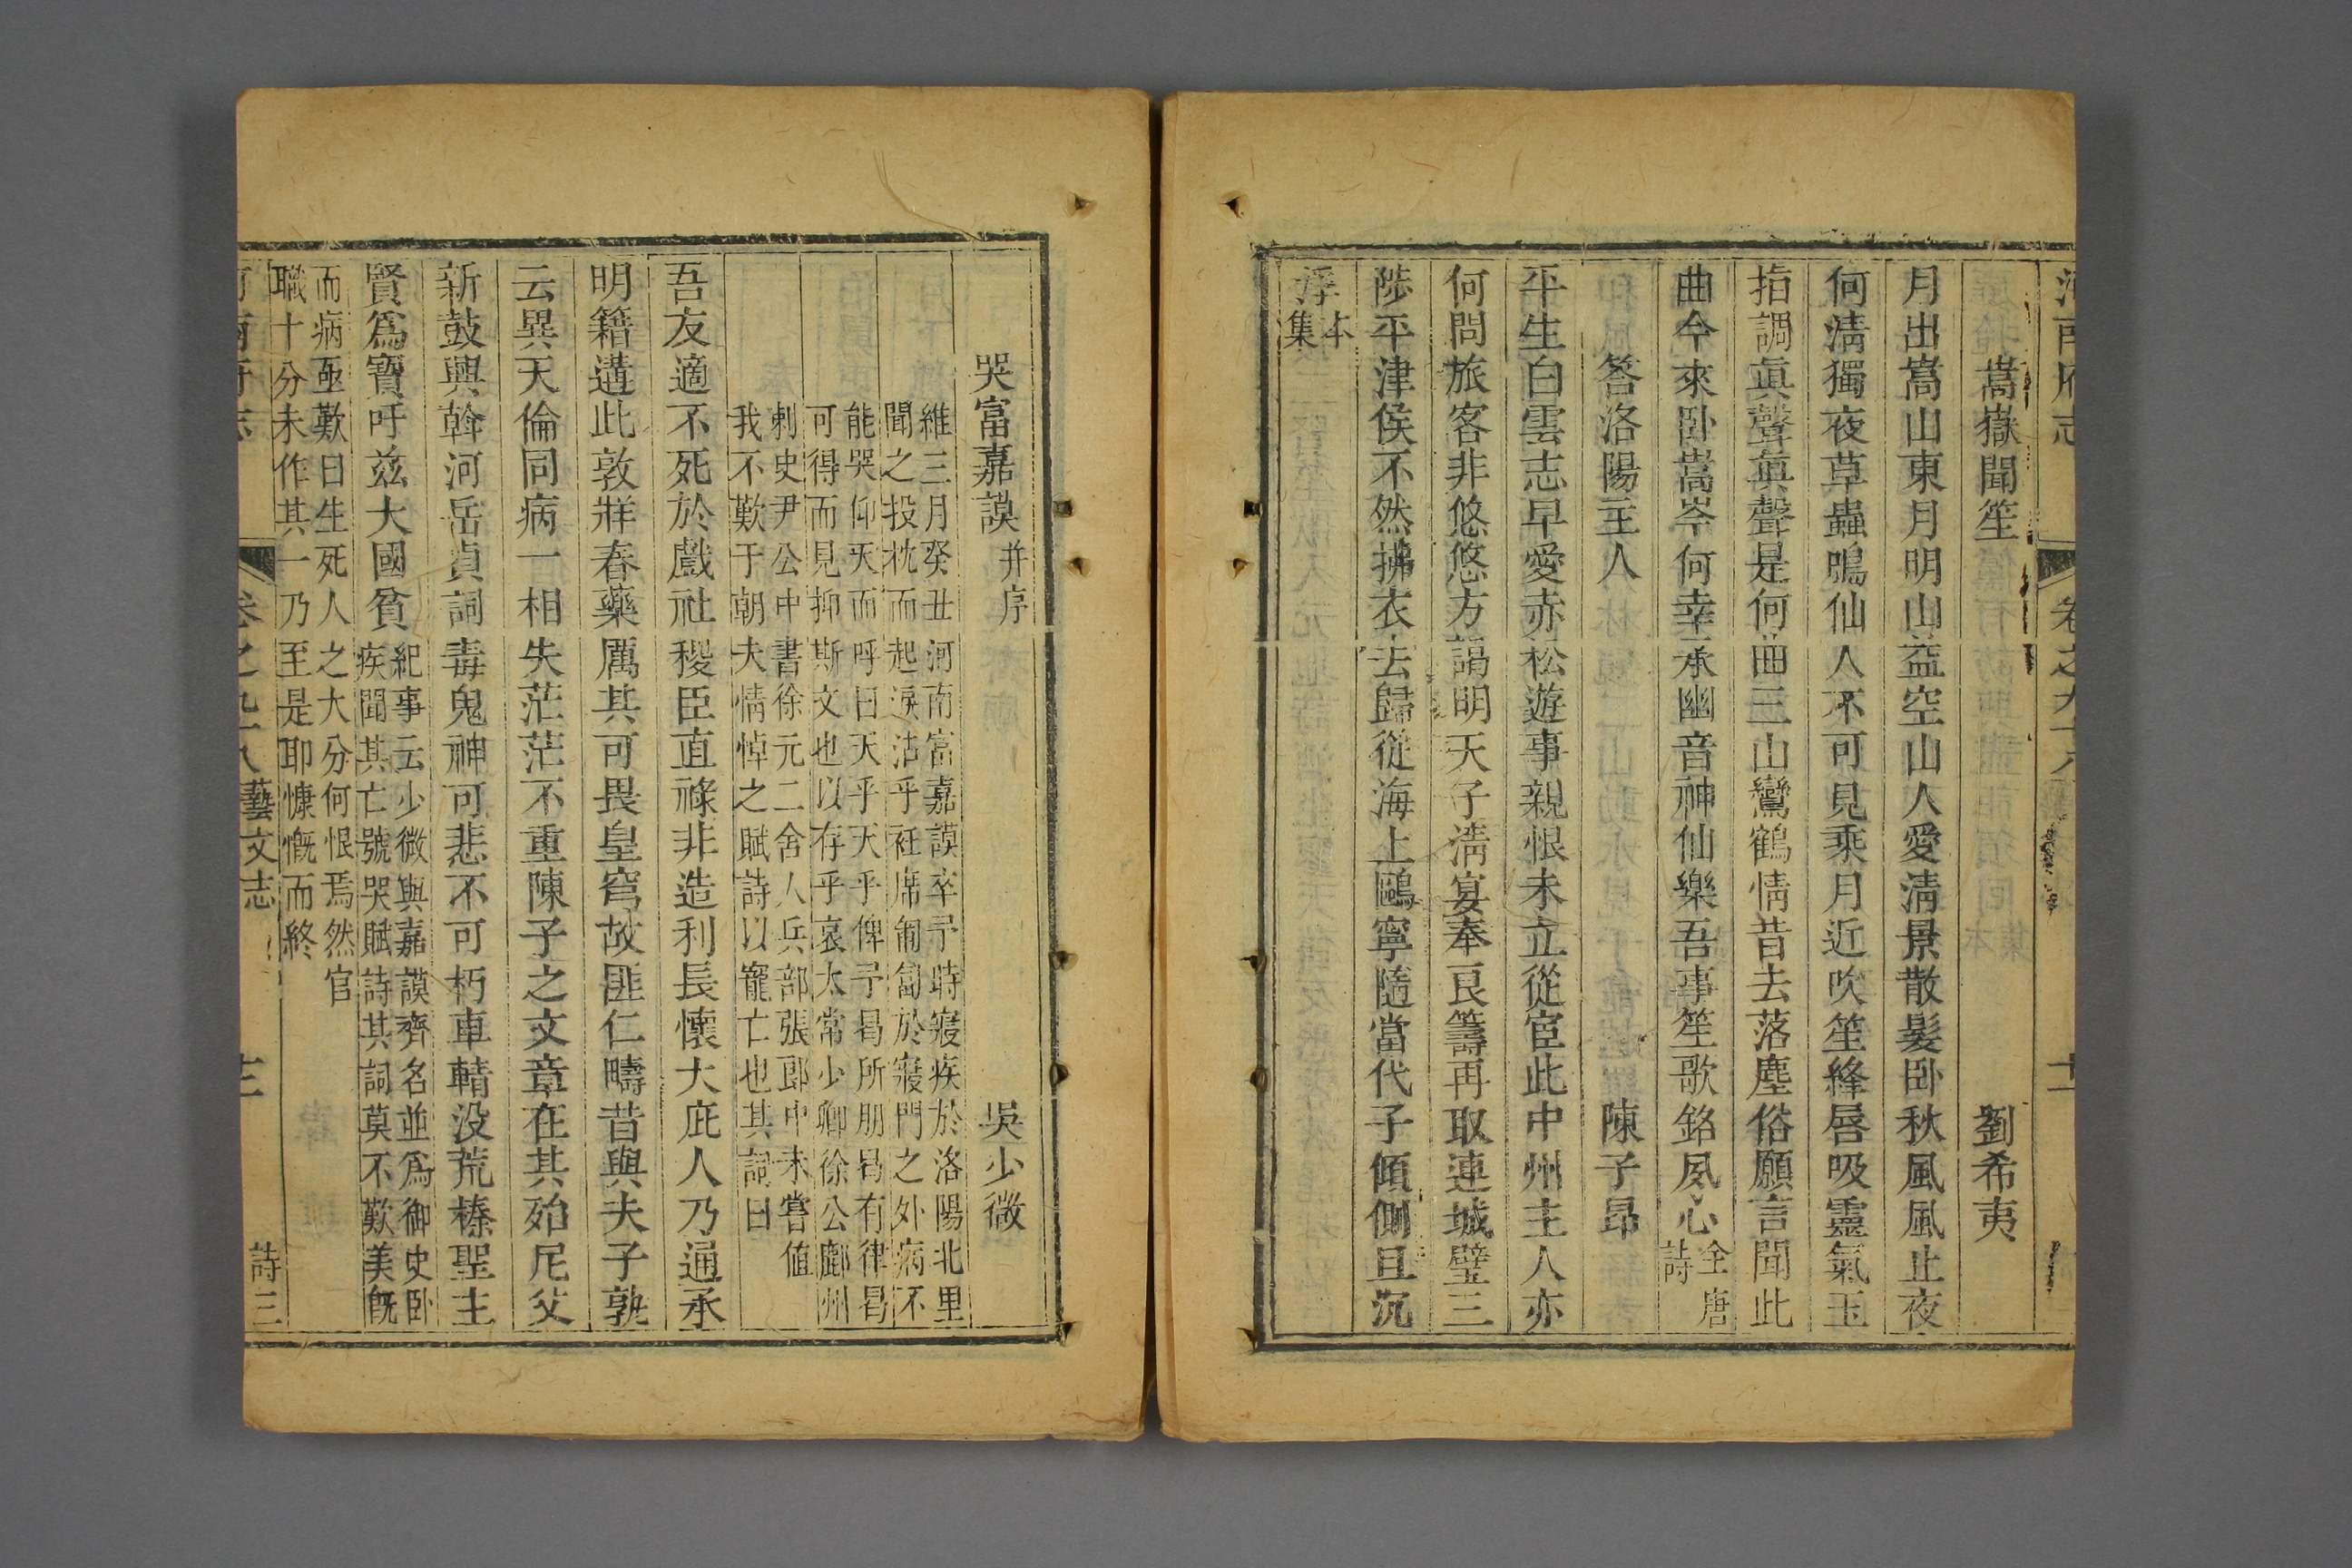 嵩嶽聞笙　劉希夷
月出嵩山東月明山益空山人愛淸景散髮卧秋風風止夜
何淸獨夜草蟲鳴仙人不可見乘月近吹笙絳唇吸靈氣玉
指調眞聲眞聲是何曲三山鸞鶴情昔去落塵俗願言聞此
曲今來卧嵩岑何幸承幽音神仙樂吾事笙歌銘夙心全唐
詩
答洛陽主人　陳子昂
平生白雲志早愛赤松遊事親恨未立從宦此中州主人亦
何問旅客非悠悠方謁明天子淸宴奉良籌再取連城璧三
陟平津侯不然拂衣去歸從海上鷗寧隨當代子傾側且沉
浮本
集
哭富嘉謨并序　吳少微
維三月癸丑河南富嘉謨卒予時寢疾於洛陽北里
聞之投枕而起淚沾乎衽席匍匐於寢門之外病不
能哭仰天而呼曰天乎天乎俾予曷所朋曷有律曷
可得而見抑斯文也以存乎哀太常少卿徐公鄜州
刺史尹公中書徐元二舍人兵部張郎中未嘗値
我不歎于朝夫情悼之賦詩以寵亡也其詞曰
吾友適不死於戲社稷臣直祿非造利長懷大庇人乃通承
明籍遘此敦牂春藥厲其可畏皇穹故匪仁疇昔與夫子孰
云異天倫同病一相失茫茫不重陳子之文章在其殆尼父
新鼓興斡河岳貞詞毒鬼神可悲不可朽車輤没荒榛聖主
賢爲寶吁兹大國貧紀事云少微與嘉謨齊名並爲御史卧
疾聞其亡號哭賦詩其詞莫不歎美旣
而病亟歎曰生死人之大分何恨焉然官
職十分未作其一乃至是耶慷慨而終
藝文志　詩三